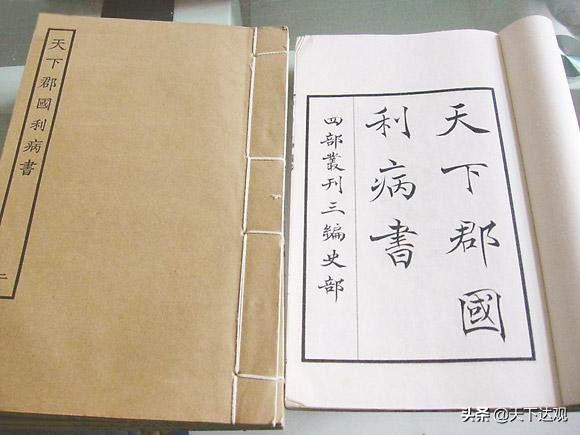 天下郡國利病書
二
天下郡國
利病書
四部叢刊三編史部
头条 @天下达观